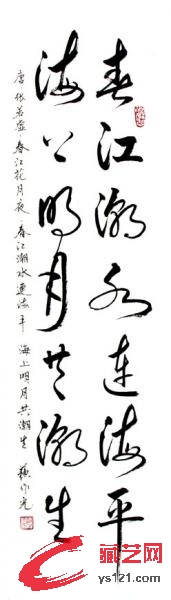 春江潮水连海平
海上明月共潮生
唐 张若虚·春江花月夜·春江潮水连海平 海上明月共潮生 苏作光
藏艺网
ys121.com